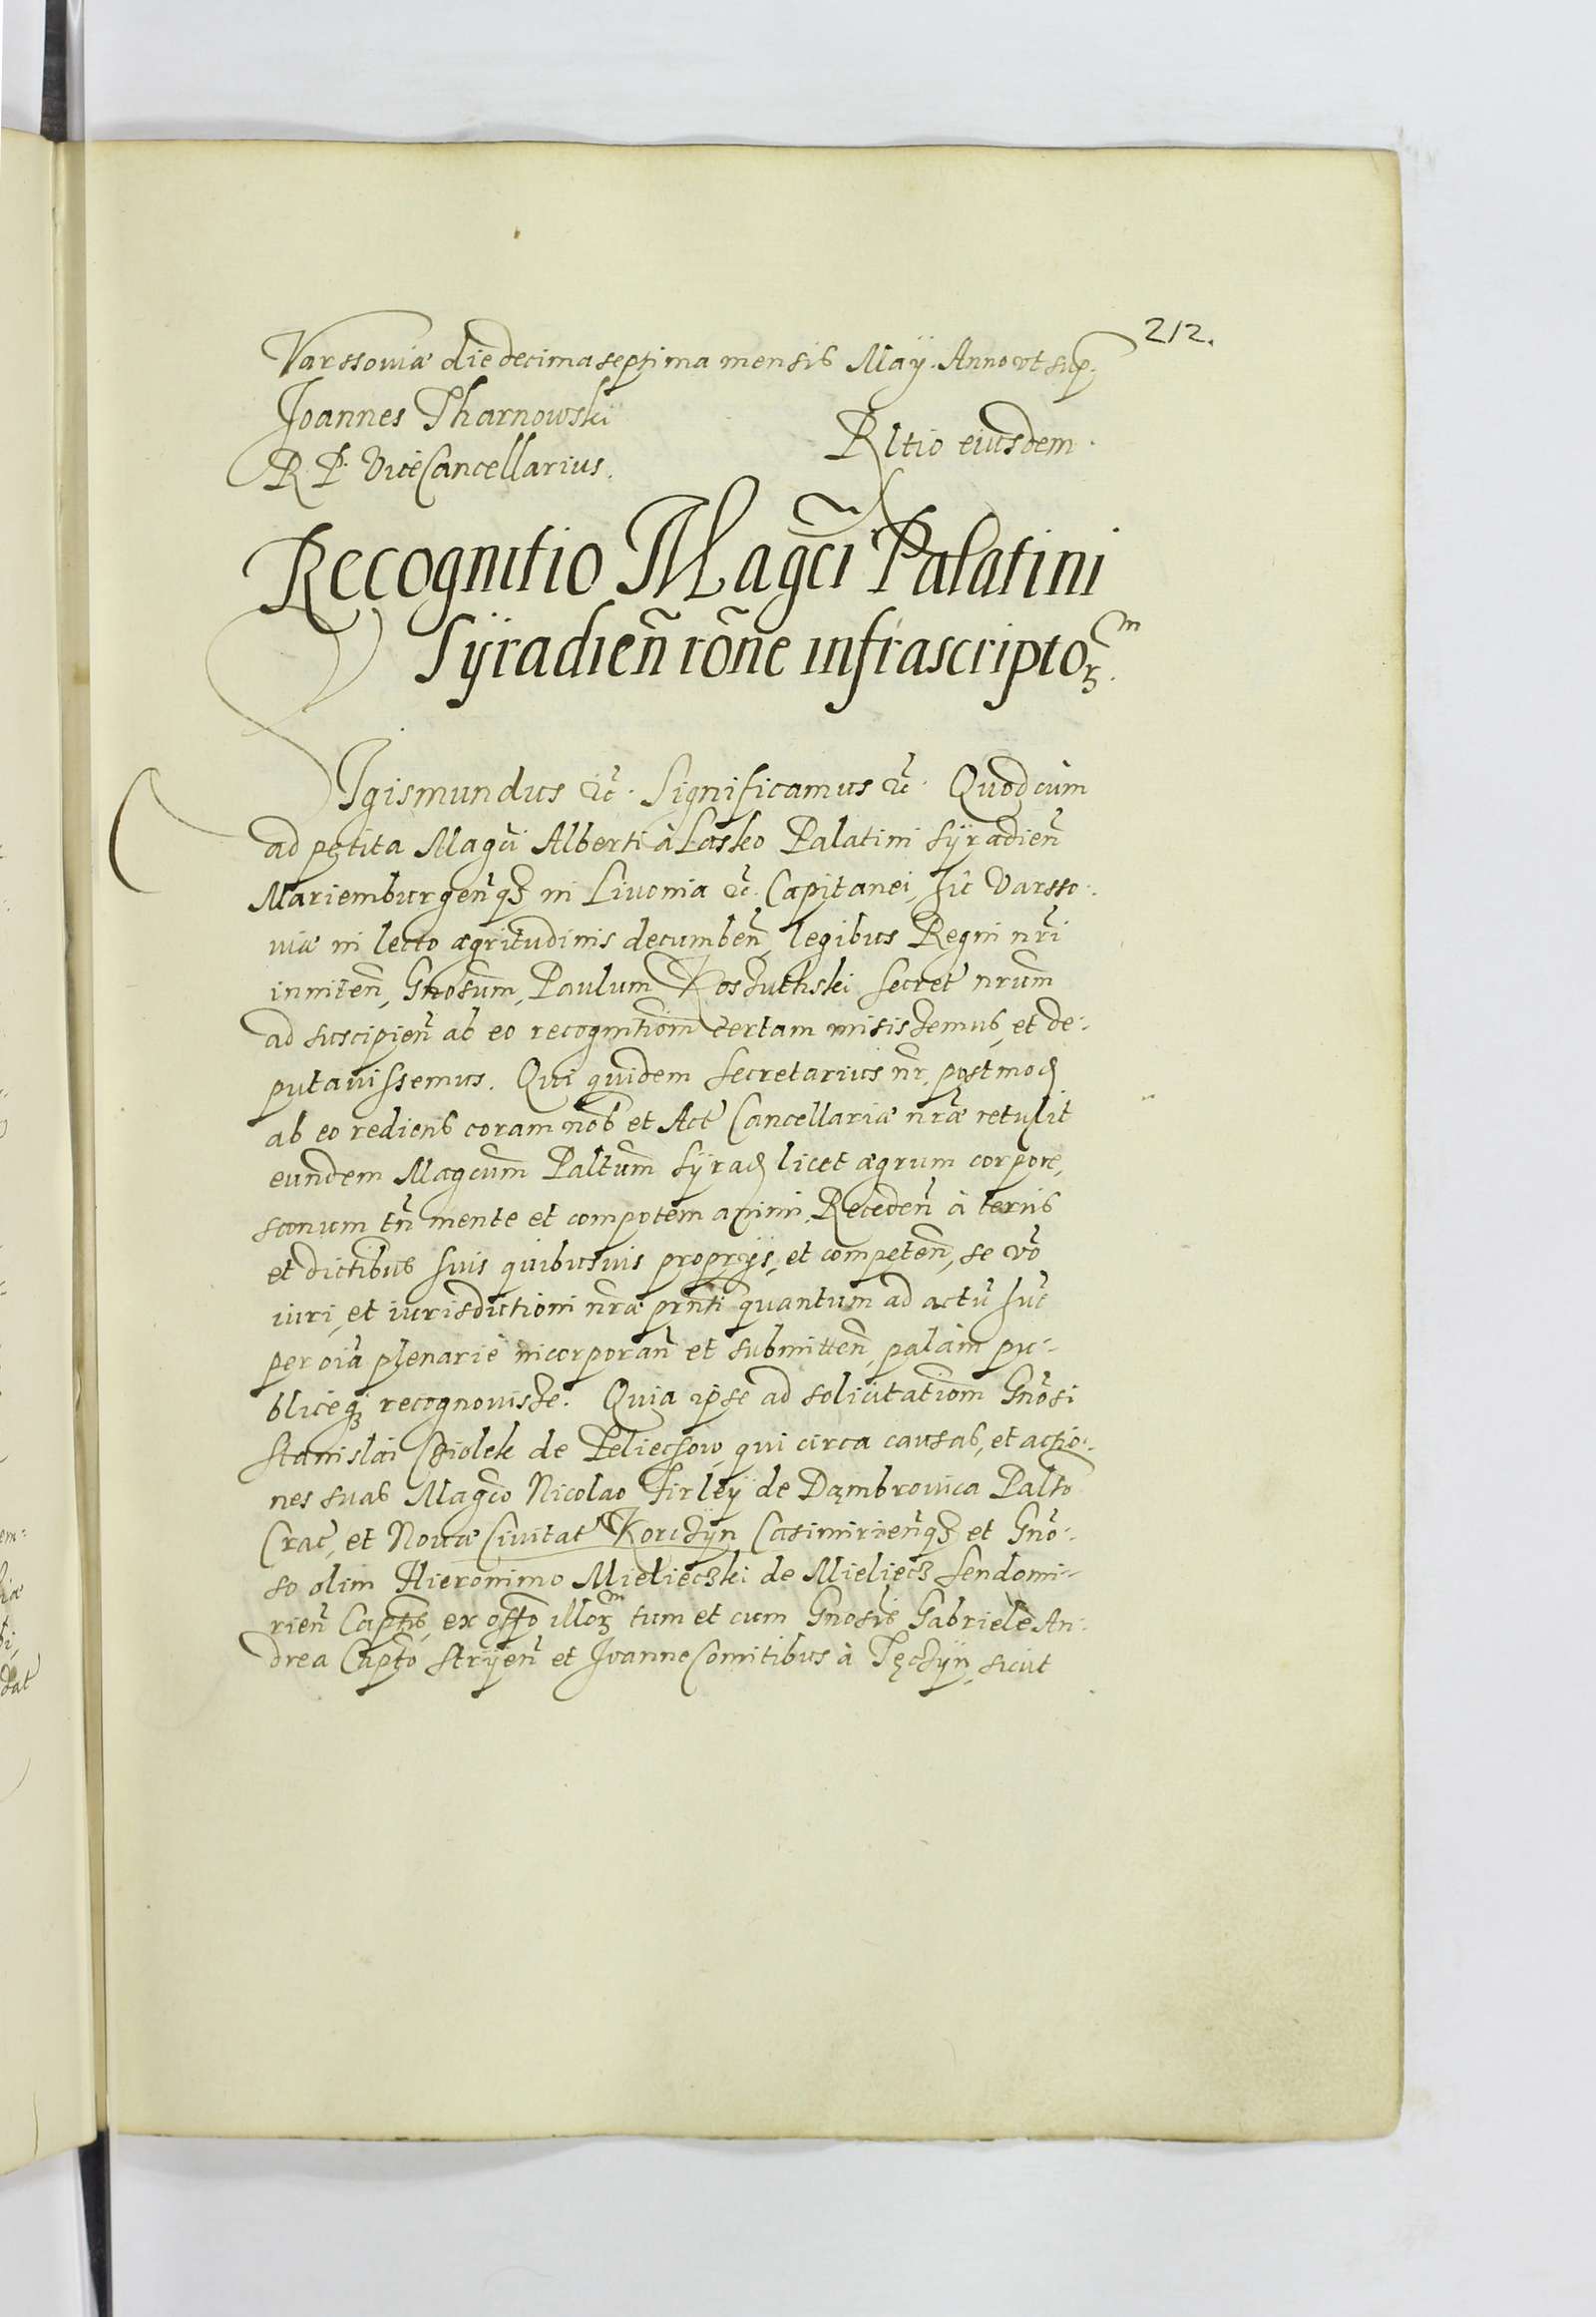 212.
Varssouiæ die decima septima mensis Maÿ. Anno ut sup
Joannes Tharnowski
R. P. ViceCancellarius.
Rltio eiusdem.
Recognitio Magc̃i Palatini
Sÿradieñ rõne infrascriptoꝝ.
Sigismundus ꝛc̃. Significamus ꝛc̃. Quod cùm
ad petita Magc̃i Alberti à Lasko Palatini Sÿradieñ
Mariemburgeñqꝫ in Liuonia ꝛc̃. Capitanei, hic Varsso-
uiæ in lecto ægritudinis decumbeñ, legibus Regni nr̃i
inniteñ, Gnosum Paulum Koszuthski Secret̃ nrum̃
ad suscipieñ ab eo recognitiom̃ certam misissemus, et de-
putauissemus. Qui quidem Secretarius nr̃, postmod
ab eo rediens coram nob̃ et Act̃ Cancellariæ nr̃æ retulit
eundem Magcum̃ Paltum̃ Sÿrad licet ægrum corpore,
sanum tñ mente et compotem animi, Recedeñ à terris
et dictibus suis quibusuis proprÿs, et competeñ, se vo͂
iuri, et iurisdictioni nr̃æ prñti quantum ad actũ hũc
per oĩa plenariè incorporañ et submitteñ, palàm pu-
bliceqꝫ recognouisse. Quia ipse ad solicitatiom̃ Gnõsi
Stanislai Cziolek de Zeliechow, qui circa causas, et actio-
nes suas Magc̃o Nicolao Firleÿ de Dąmbrowica Palto
Crac̃, et Nouæ Ciuitat̃ Korczÿn Casimirieñqꝫ et Gnõ-
so olim Hieronimo Mieliecżki de Mieliecz Sendomi-
rieñ Captis, ex offo illoꝝ tum et cum Gnosis Gabriele An-
drea Capto Strÿeñ et Joanne Comitibus à Tęczÿn, sicut